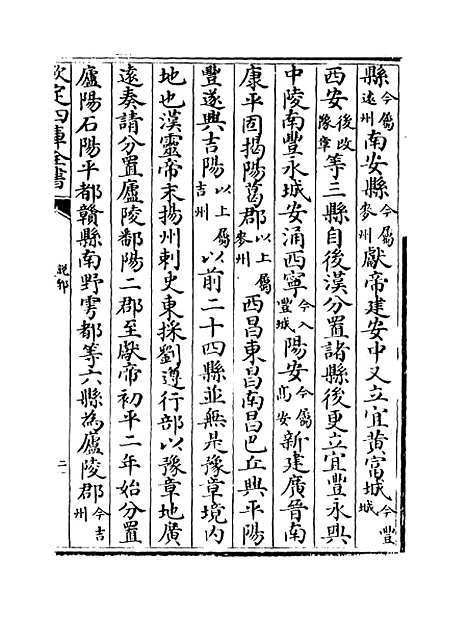 縣今屬遠州南安縣今屬麥州獻帝建安中又立宜黄富城今豐城
西安後改豫章等三縣自後漢分置諸縣後更立宜豐永興
中陵南豐永城安涌西寧今入豐城陽安今屬高安新建廣晉南
康平固揭陽葛郡以上屬麥州西昌東昌南昌巴丘興平陽
豐遂興吉陽以上屬吉州以前二十四縣並無是豫章境内
地也漢靈帝末揚州刺史東採劉遵行部以豫章地廣
遠奏請分置廬陵鄱陽二郡至獻帝初平二年始分置
廬陽石陽平都贛縣南野雩都等六縣為廬陵郡今吉州
欽定四庫全書
說郛
二